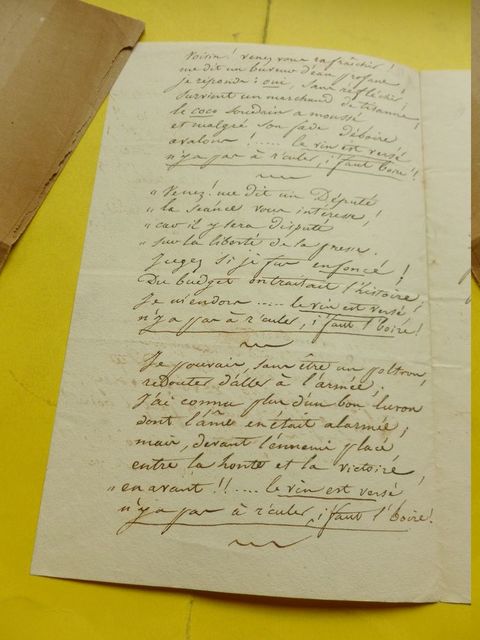 Voisin! venez vous rafraîchir!
me dit un buveur d'eau profane;
je réponds: oui, sans réfléchir
survient un marchand de tisanne;
le coco soudain a moussé
et malgré son fade déboire
avalons!..... le vin est versé
n'y a pas à r'culer, i faut l'boire!!
" Venez! me dit un Député
" la séance vous intéresse,
" car il y sera disputé
" sur la liberté de la presse.
Jugez si je fus enfoncé!
Du budget on traitait l'histoire;
Je m'endors ..... le vin est versé
n'y a pas à r'culer, i faut l'boire!
Je pouvais, sans être un poltron,
redouter d'aller à l'armée;
J'ai connu plus d'un bon luron
dont l'âme en était alarmée;
mais, devant l'ennemi placé,
entre la honte et la victoire,
" en avant!! .... le vin est versé
n'y a pas à r'culer, i faut l'boire!